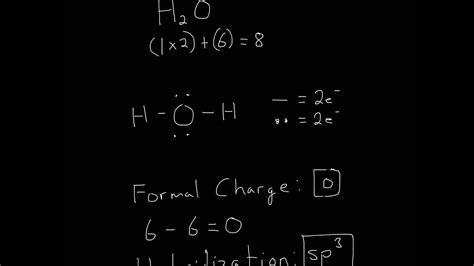 H₂O
(1×2)+(6)=8
H-O-H — = 2e⁻
•• = 2e⁻
Formal Charge: 0
6-6=0
Hybridization: sp³